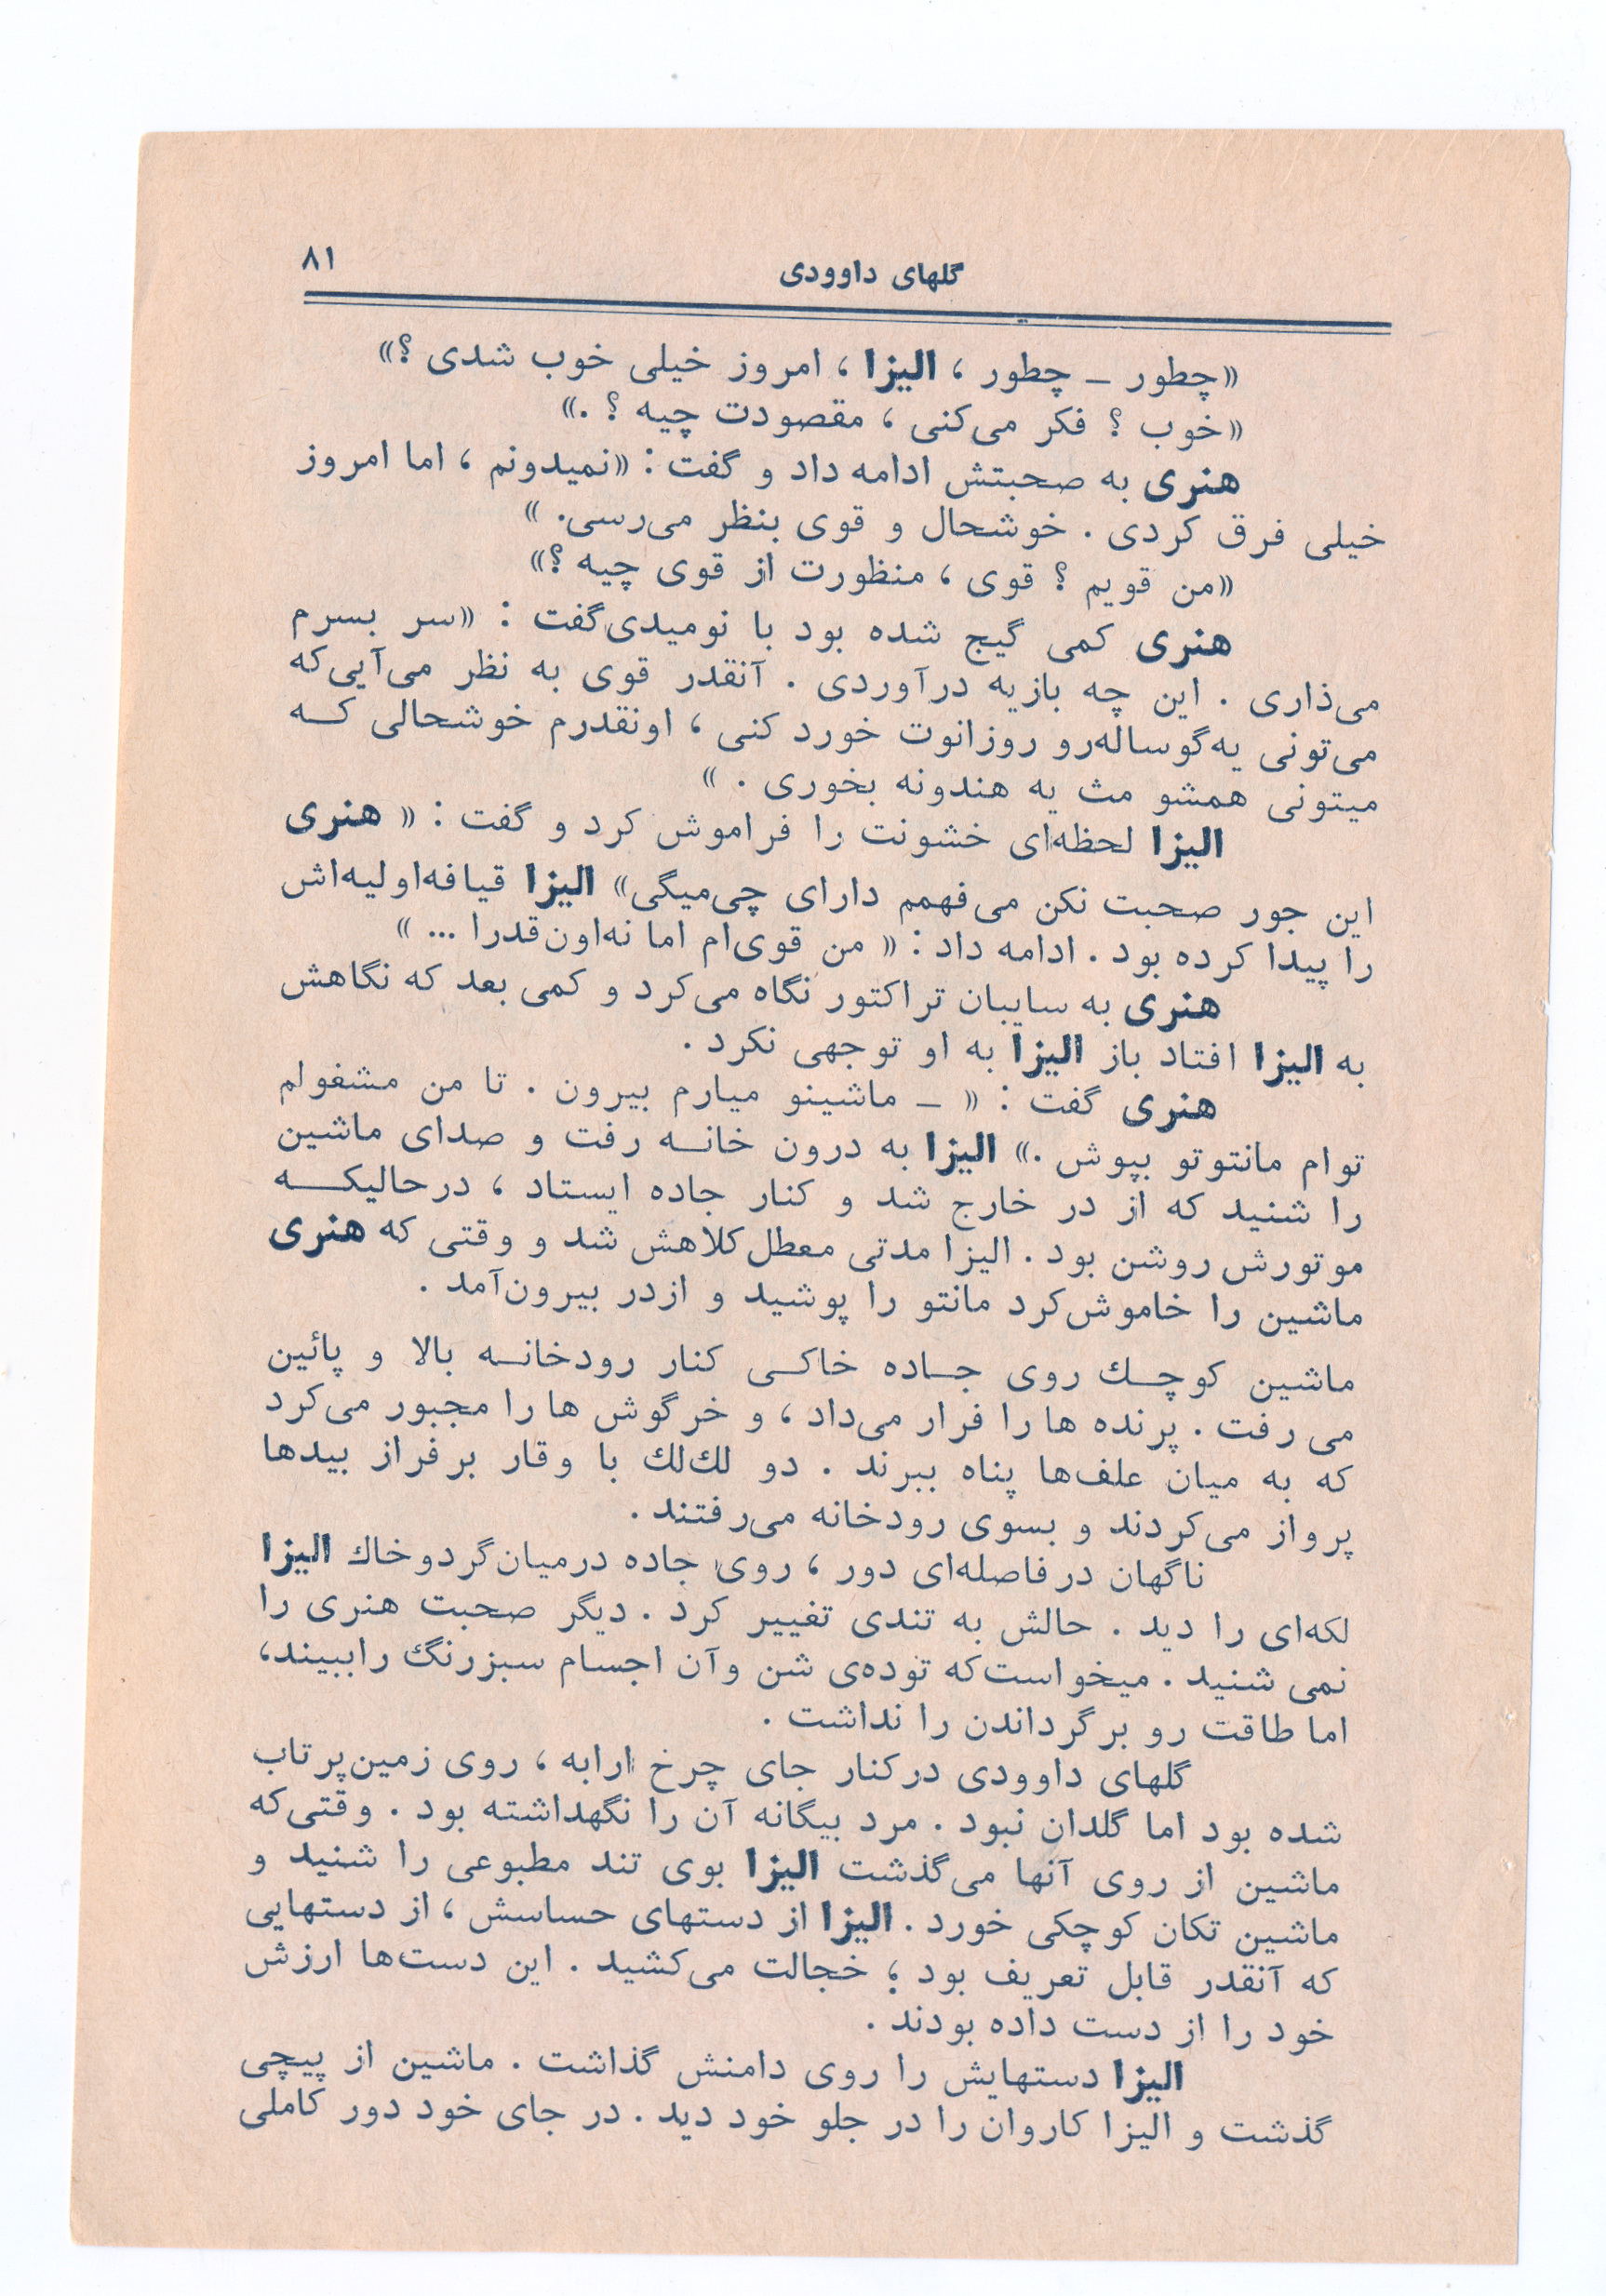 گلهای داوودی ۸۱
«چطور ـ چطور ، الیزا ، امروز خیلی خوب شدی ؟»
«خوب ؟ فکر می‌کنی ، مقصودت چیه ؟ .»
هنری به صحبتش ادامه داد و گفت : «نمیدونم ، اما امروز
خیلی فرق کردی . خوشحال و قوی بنظر می‌رسی. »
«من قویم ؟ قوی ، منظورت از قوی چیه ؟»
هنری کمی گیج شده بود با نومیدی گفت : «سر بسرم
می‌ذاری . این چه بازیه درآوردی . آنقدر قوی به نظر می‌آیی که
می‌تونی یه گوساله‌رو روزانوت خورد کنی ، اونقدرم خوشحالی که
میتونی همشو مث یه هندونه بخوری . »
الیزا لحظه‌ای خشونت را فراموش کرد و گفت : « هنری
این جور صحبت نکن می‌فهمم دارای چی‌میگی» الیزا قیافه‌اولیه‌اش
را پیدا کرده بود . ادامه داد : « من قوی‌ام اما نه‌اون‌قدرا ... »
هنری به سایبان تراکتور نگاه می‌کرد و کمی بعد که نگاهش
به الیزا افتاد باز الیزا به او توجهی نکرد .
هنری گفت : « ـ ماشینو میارم بیرون . تا من مشغولم
توام مانتوتو بپوش .» الیزا به درون خانه رفت و صدای ماشین
را شنید که از در خارج شد و کنار جاده ایستاد ، درحالیکه
موتورش روشن بود . الیزا مدتی معطل کلاهش شد و وقتی که هنری
ماشین را خاموش کرد مانتو را پوشید و ازدر بیرون‌آمد .
ماشین کوچک روی جاده خاکی کنار رودخانه بالا و پائین
می رفت . پرنده ها را فرار می‌داد ، و خرگوش ها را مجبور می‌کرد
که به میان علف‌ها پناه ببرند . دو لک‌لک با وقار برفراز بیدها
پرواز می‌کردند و بسوی رودخانه می‌رفتند .
ناگهان درفاصله‌ای دور ، روی جاده درمیان گردوخاک الیزا
لکه‌ای را دید . حالش به تندی تغییر کرد . دیگر صحبت هنری را
نمی شنید . میخواست که توده‌ی شن وآن اجسام سبزرنگ راببیند،
اما طاقت رو برگرداندن را نداشت .
گلهای داوودی درکنار جای چرخ ارابه ، روی زمین پرتاب
شده بود اما گلدان نبود . مرد بیگانه آن را نگهداشته بود . وقتی که
ماشین از روی آنها می‌گذشت الیزا بوی تند مطبوعی را شنید و
ماشین تکان کوچکی خورد . الیزا از دستهای حساسش ، از دستهایی
که آنقدر قابل تعریف بود ؛ خجالت می‌کشید . این دست‌ها ارزش
خود را از دست داده بودند .
الیزا دستهایش را روی دامنش گذاشت . ماشین از پیچی
گذشت و الیزا کاروان را در جلو خود دید . در جای خود دور کاملی